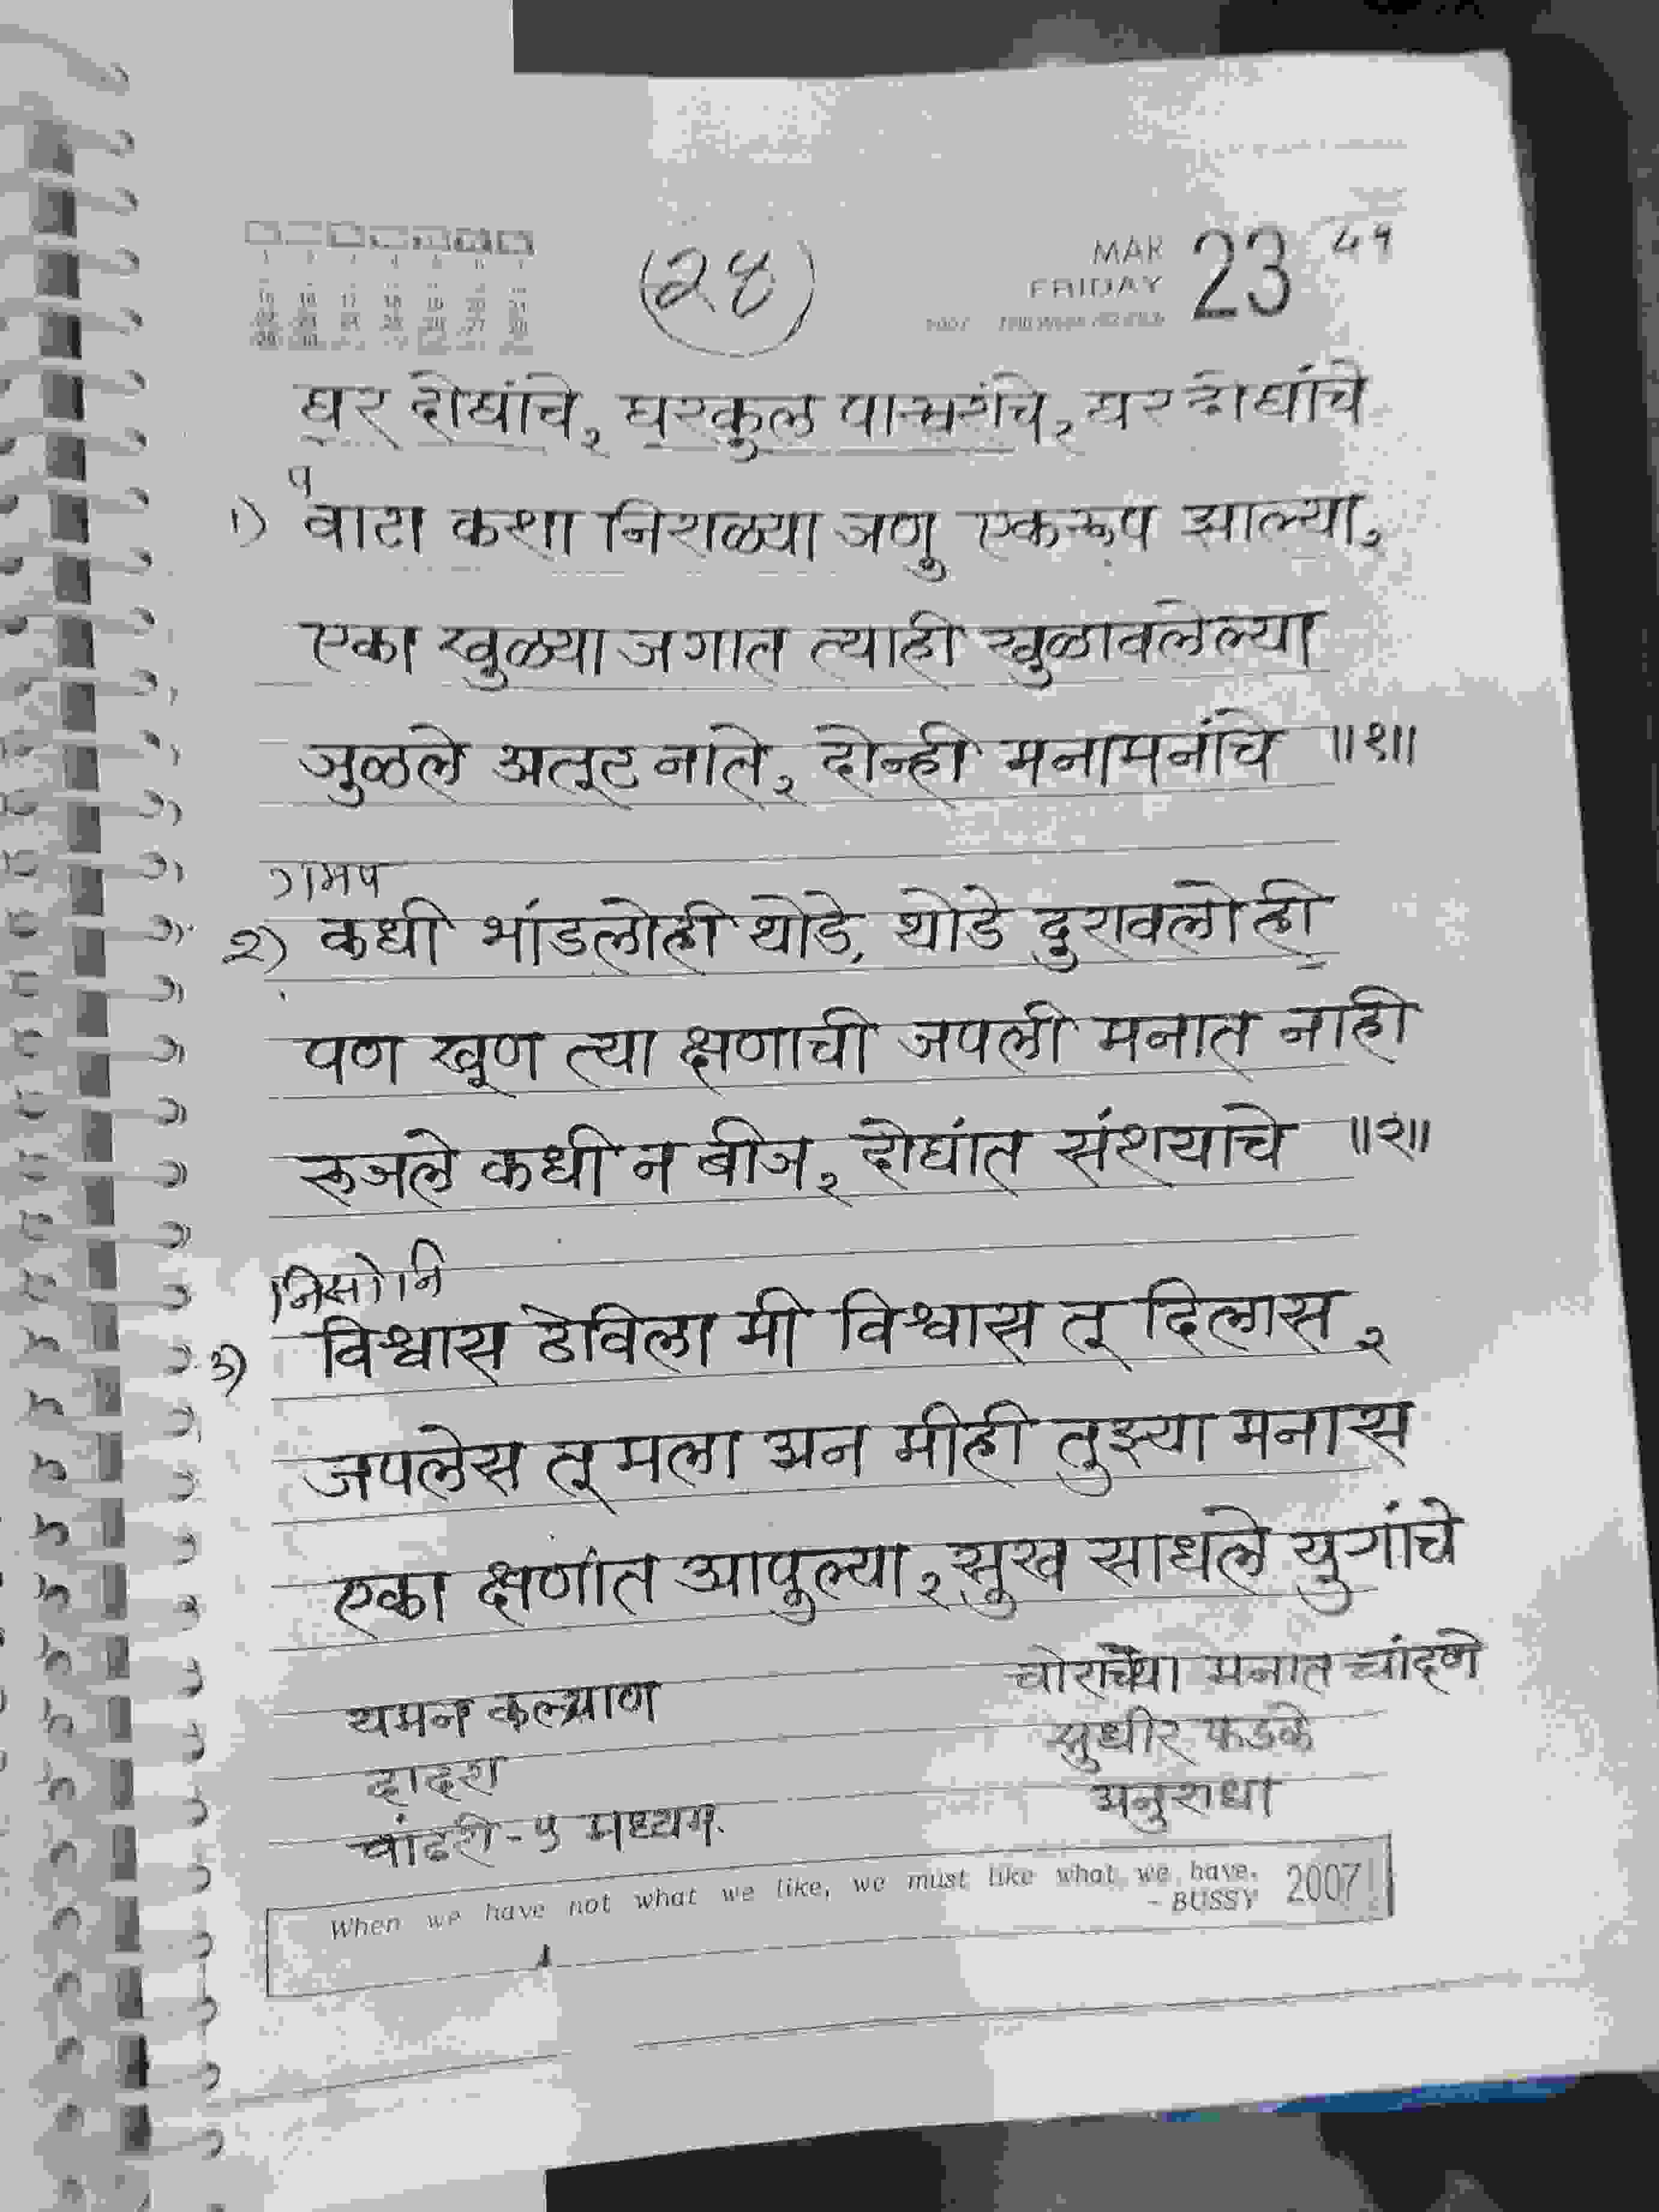 (२४)
MAR 23 ४१
FRIDAY
घर दोघांचे, घरकुल पाखरांचे, घर दोघांचे
प
१) वाटा कशा निराळ्या जणु एकरूप झाल्या,
एका खुळ्या जगात त्याही खुळावलेल्या
जुळले अतूट नाते, दोन्ही मनामनांचे ॥१॥
गमप
२) कधी भांडलोही थोडे, थोडे दुरावलोही
पण खूण त्या क्षणाची जपली मनात नाही
रूजले कधी न बीज, दोघांत संशयाचे ॥२॥
३) विश्वास ठेविला मी विश्वास तू दिलास,
जपलेस तू मला अन मीही तुझ्या मनास
एका क्षणांत आपुल्या, सुख साधले युगांचे
चोराच्या मनात चांदणे
यमन कल्याण
सुधीर फडके
दादरा
अनुराधा
पांढरी - ५ मध्यम.
When we have not what we like, we must like what we have. 2007
- BUSSY